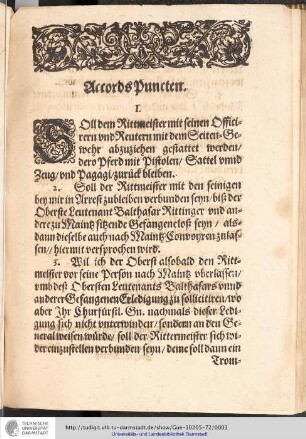 Accords Puncten.
I.
SOll dem Rittmeister mit seinen Offici-
rern vnd Reutern mit dem Seiten-Ge-
wehr abzuziehen gestattet werden/
dero Pferd mit Pistolen/ Sattel vnnd
Zeug/ vnd Pagagi/ zurück bleiben.
2. Soll der Rittmeister mit den seinigen
bey mir in Arrest zubleiben verbunden seyn/ biß der
Oberste Leutenant Balthasar Rittinger vnd an-
dere zu Maintz sitzende Gefangene loß seyn/ als-
dann dieselbe auch nach Maintz Convoyren zulas-
sen/ hiermit versprochen wird.
3. Wil ich der Oberst alsobald den Ritt-
meister vor seine Person nach Maintz vberlassen/
vmb deß Obersten Leutenants Balthasars vnnd
anderer Gefangenen Erledigung zu sollicitiren/ wo
aber Ihr Churfürstl. Gn. nachmals dieser Ledi-
gung sich nicht vnterwinden/ sondern an den Ge-
neral weisen würde/ soll der Rittermeister sich wi-
der einzustellen verbunden seyn/ deme soll dann ein
Trom-
TECHNISCHE
UNIVERSITÄT
DARMSTADT
http://tudigit.ulb.tu-darmstadt.de/show/Gue-10205-72/0003
Universitäts- und Landesbibliothek Darmstadt